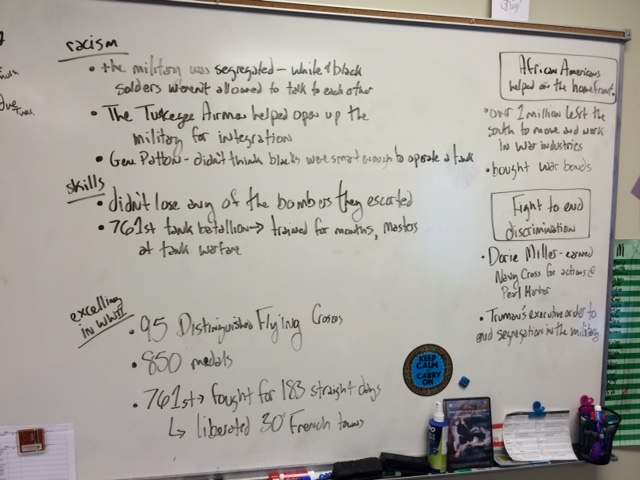 racism
• the military was segregated – while & black
solders weren't allowed to talk to each other
• The Tuskegee Airmen helped open up the
military for integration
• Gen. Patton – didn't think blacks were smart enough to operate a tank
skills
• didn't lose any of the bombers they escorted
• 761st tank batallion → trained for months, masters
at tank warfare
excelling
in WWII
• 95 Distinguished Flying Crosses
• 850 medals
• 761st → fought for 183 straight days
↳ liberated 30 French towns
African Americans
helped on the homefront
• over 1 million left the
south to move and work
in war industries
• bought war bonds
Fight to end
discrimination
• Dorie Miller – earned
Navy Cross for actions @
Pearl Harbor
• Truman's executive order to
end segregation in the military
KEEP
CALM
AND
CARRY
ON